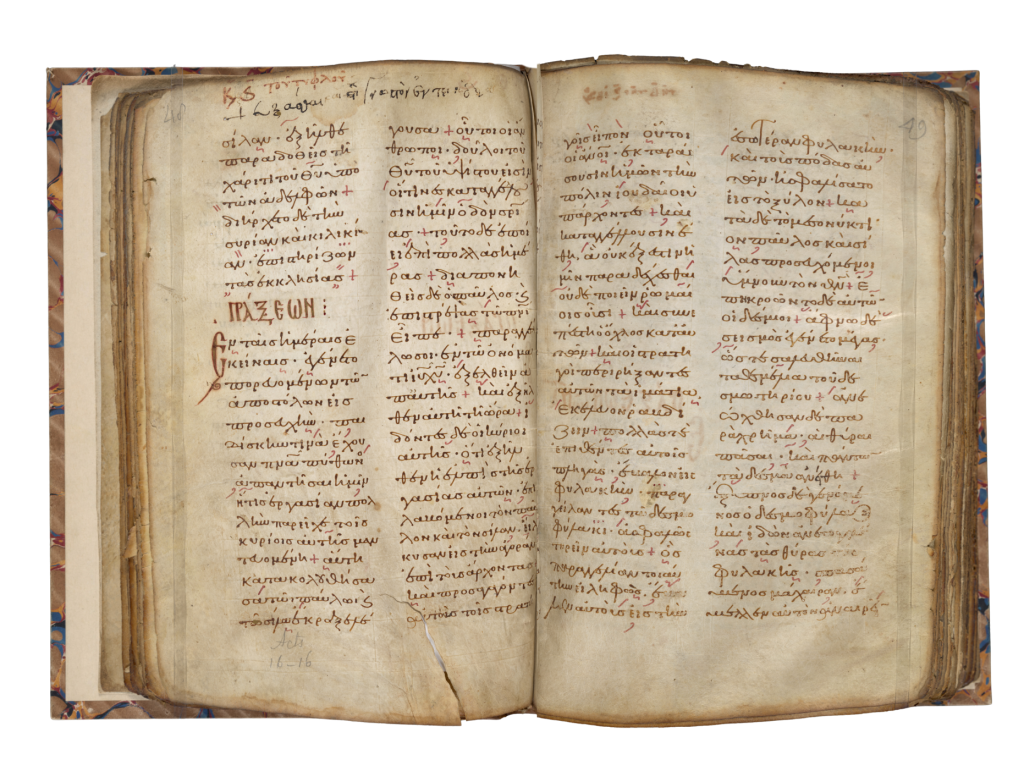 ΚϚ τοῦ τυφλοῦ
σίλαν· ἐξῆλθε
παραδοθεὶς τῆ
χάριτι τοῦ θυ ὑπὸ
τῶν ἀδελφῶν +
διήρχετο δε τὴν
συρίαν καὶ κιλικί
αν· ἐπιστηρίζων
τὰς ἐκκλησίας +
ΠΡΑΞΕΩΝ:
Ἐν ταῖς ἡμέραις ἐ
κείναις· ἐγένετο
πορευομένων τῶν
ἀποστόλων εἰς
προσευχὴν· παι
δίσκην τινὰ ἔχου
σαν πνα πύθωνος
ἀπαντῆσαι ἡμῖν
ἥτις ἐργασίαν πολ
λὴν παρεῖχε τοῖς
κυρίοις αὐτῆς μαν
τευομένη + αὕτη
κατακολουθήσα
σα τῶ παύλω κ
τῶ σίλα ἔκραζε λέ
γουσα + οὗτοι οἱ ἄν
θρωποι· δοῦλοι τοῦ
θυ τοῦ ὑψίστου εἰσὶν
οἵτινες καταγγέλου
σιν ἡμῖν ὁδὸν σρι
ας + τοῦτο δε ἐποί
ει ἐπὶ πολλὰς ἡμέ
ρας + διαπονη
θεὶς δε ὁ παῦλος· κ
ἐπιστρέψας τῶ πνι
εἶπε· + παραγγέ
λω σοι· ἐν τῶ ὀνόμα
τι ιυ χυ· ἐξελθεῖν ἀ
π' αὐτῆς + καὶ ἐξῆλ
θεν αὐτῆ τῆ ὥρα + ἰ
δόντες δε οἱ κύριοι
αὐτῆς· ὅτι ἐξῆλ
θεν ἡ ἐλπὶς τῆς ἐρ
γασίας αὐτῶν· ἐπι
λαβόμενοι τὸν παῦ
λον καὶ τὸν σίλαν· εἵλ
κυσαν εἰς τὴν ἀγορὰν
ἐπὶ τοὺς ἄρχοντας
καὶ προσαγαγόντες
αὐτοὺς τοῖς στρατη
Acts
16-16
γοῖς εἶπὸν οὗτοι
οἱ ἄνοι· ἐκταράσ
σουσιν ἡμῶν τὴν
πόλιν ἰουδαῖοι ὑ
πάρχοντες + καὶ
καταγγέλλουσιν ἔ
θη, ἃ οὐκ ἔξεστιν ἡ
μῖν παραδέχεσθαι
οὐδὲ ποιεῖν ῥωμαί
οις οὖσι + καὶ συνε
πέστη ὁ ὄχλος κατ' αὐ
τῶν + καὶ οἱ στρατη
γοὶ περιρήξαντες
αὐτῶν τὰ ἱμάτια
ἐκέλευον ῥαβδί
ζειν + πολλάς τε
ἐπιθέντες αὐτοῖς
πληγὰς· ἔβαλον εἰς
φυλακὴν· παραγ
γείλαντες τῶ δεσμο
φύλακι· ἀσφαλῶς
τηρεῖν αὐτούς + ὃς
παραγγελίαν τοιαύ
την εἰληφὼς· ἔβα
λεν αὐτοὺς εἰς τὴν
49
ἐσωτέραν φυλακὴν·
καὶ τοὺς πόδας αὐ
τῶν· ἠσφαλίσατο
εἰς τὸ ξύλον + κα
τὰ δε τὸ μεσονύκτι
ον παῦλος καὶ σί
λας προσευχόμενοι
ὕμνουν τὸν θν + ἐ
πηκροῶντο δε αὐτῶν
οἱ δέσμιοι + ἄφνω δὲ
σεισμὸς ἐγένετο μέγας·
ὥστε σαλευθῆναι
τὰ θεμέλια τοῦ δε
σμωτηρίου + ἀνε
ώχθησαν δε πα
ραχρῆμα· αἱ θύραι
πᾶσαι· καὶ πάντων
τὰ δεσμὰ ἀνέθη +
ἔξυπνος δε γενόμε
νος ὁ δεσμοφύλαξ
καὶ ἰδὼν ἀνεωγμέ
νας τὰς θύρας τῆς
φυλακῆς· σπασά
μενος μάχαιραν· ἔ
μελλεν αὐτὸν ἀναιρεῖν